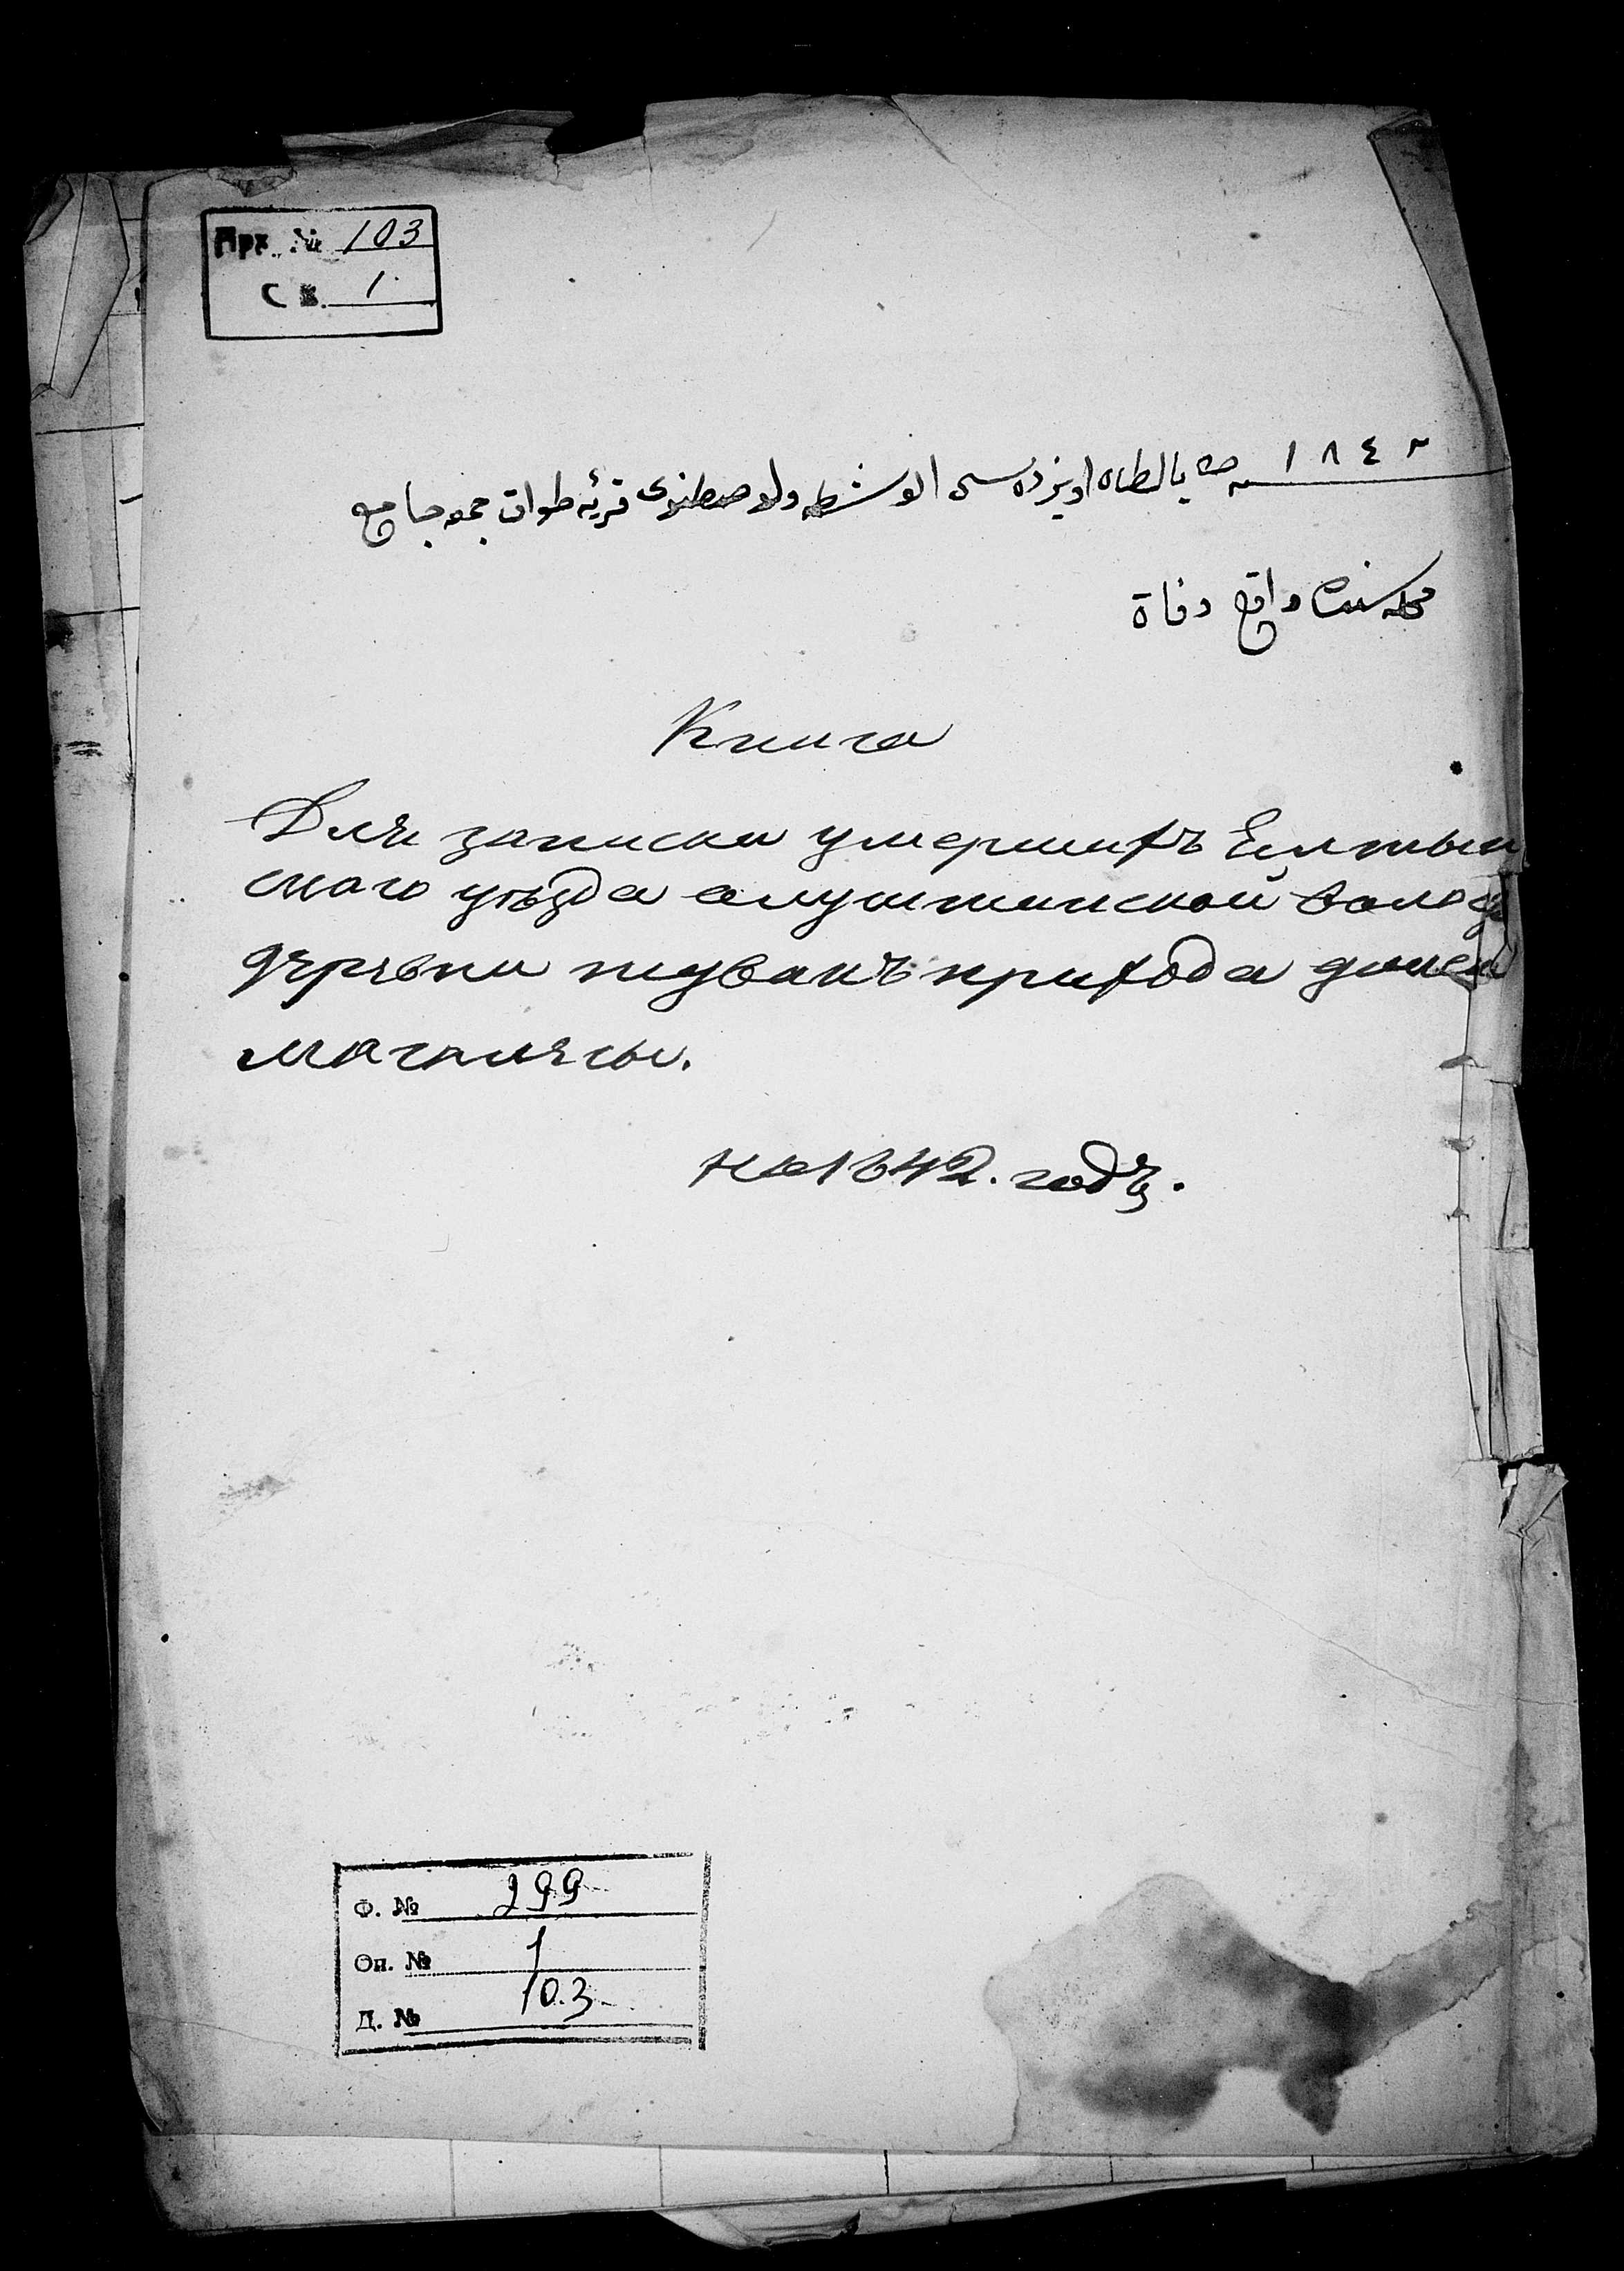 Арх. № 103
Св. 1.
١٨٤٢ سنه ده يالطاه اويزدەسى الوشطه ولوصطنوى قريۀ طواق جمعه جامع
محله سنده واقع وفاة
Книга
Для записки умершихъ Елтын
ского уѣзда алуштинской волос
дерѣвни тувакъ прихода джем
магалясы.
на 1842. годъ.
Ф. № 299
Оп. № 1
Д. № 103